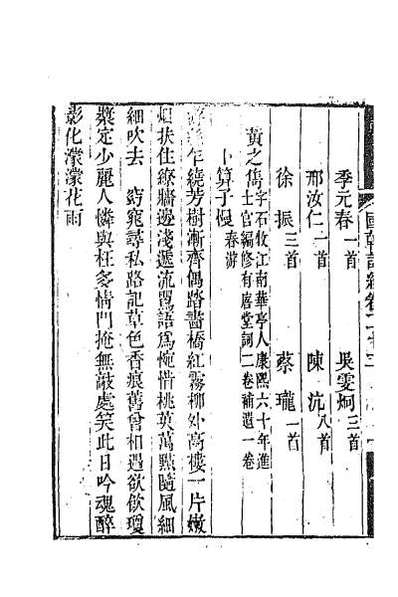 國朝詞綜卷二十
季元春一首
吳雯炯三首
邢汝仁一首
陳沆八首
徐振三首
蔡瓏一首
黃之雋字石牧江南華亭人康熙六十年進
士官編修有𢈪堂詞二卷補遺一卷
卜算子慢春游
年繞芳樹漸齊偶踏畵橋紅霧柳外高樓一片嫩
扶住繚牆邊淺遞流鶯語爲惋惜桃英萬㸃隨風細
細吹去 窈窕尋私路記草色香痕舊曾相遇欲倣瓊
漿定少麗人憐與枉多情門掩無敲處笑此日吟魂醉
影化濛濛花雨